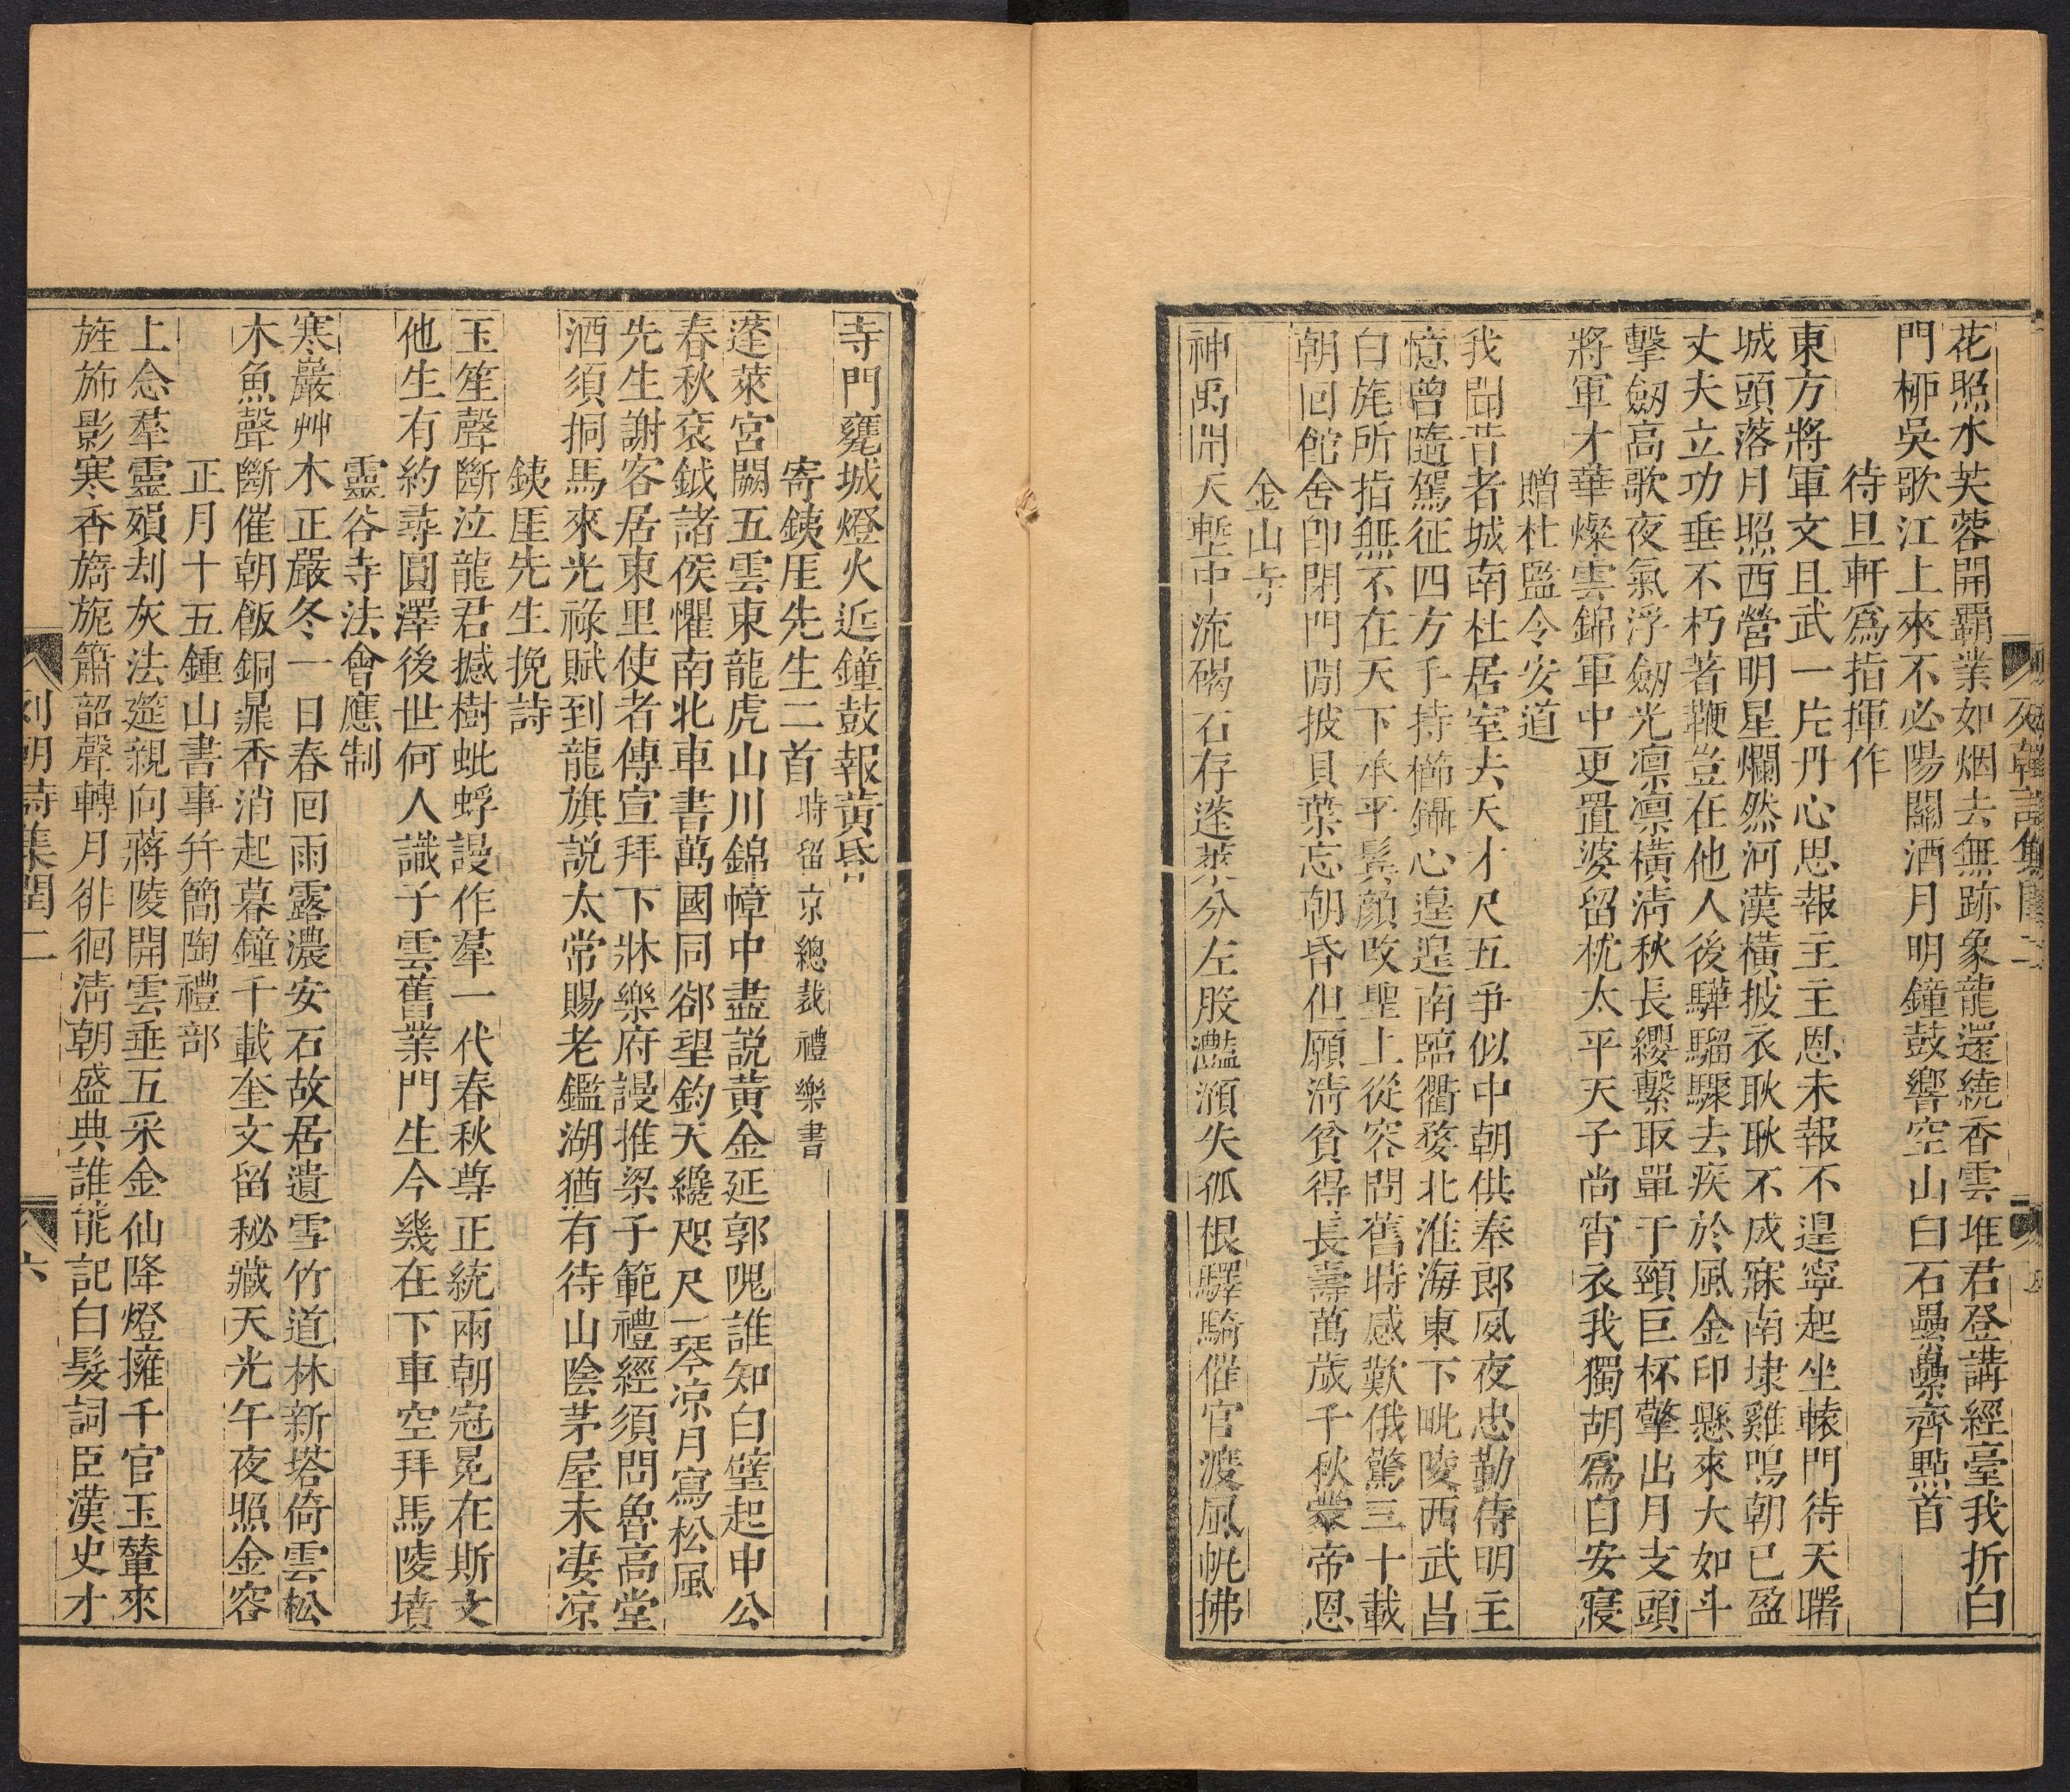 花照水芙蓉開霸業如烟去無跡象龍還繞香雲堆君登講經臺我折白
門栁吳歌江上來不必陽關酒月明鐘鼓響空山白石壘纍齊點首
待旦軒爲指揮作
東方將軍文且武一片丹心思報主主恩未報不遑寧起坐轅門待天曙
城頭落月照西營明星爛然河漢橫披衣耿耿不成寐南埭雞鳴朝已盈
丈夫立功垂不朽著鞭豈在他人後驊騮驟去疾於風金印懸來大如斗
擊劒高歌夜氣浮劒光凛凛橫淸秋長纓繫取單于頸巨杯擎出月支頭
將軍才華燦雲錦軍中更置婆留枕太平天子尚宵衣我獨胡爲自安寢
贈杜監令安道
我聞昔者城南杜居室去天才尺五爭似中朝供奉郎夙夜忠勤侍明主
憶曾隨駕征四方手持櫛鑷心遑遑南臨衢婺北淮海東下毗陵西武昌
白旄所指無不在天下承平鬂顏改聖上從容問舊時感歎俄驚三十載
朝回館舍卽閉門閒披貝葉忘朝昏但願淸貧得長壽萬歲千秋䝉帝恩
金山寺
神禹開天塹中流碣石存蓬萊分左股灩澦失孤根驛騎催官渡風帆拂
寺門甕城燈火近鐘鼓報黃昏
寄銕厓先生二首 時留京總裁禮樂書
蓬萊宮闕五雲東龍虎山川錦幛中盡説黃金延郭隗誰知白璧起申公
春秋袞鉞諸侯懼南北車書萬國同卻望鈞天纔咫尺一琴凉月寫松風
先生謝客居東里使者傳宣拜下牀樂府謾推梁子範禮經須問魯高堂
酒須挏馬來光祿賦到龍旗説太常賜老鑑湖猶有待山陰茅屋未凄凉
銕厓先生挽詩
玉笙聲斷泣龍君撼樹蚍蜉謾作羣一代春秋尊正統兩朝冠冕在斯文
他生有約尋圓澤後世何人識子雲舊業門生今幾在下車空拜馬陵墳
靈谷寺法會應制
寒巖艸木正嚴冬一日春回雨露濃安石故居遺雪竹道林新塔倚雲松
木魚聲斷催朝飯銅鼎香消起暮鐘千載奎文留秘藏天光午夜照金容
正月十五鍾山書事幷簡陶禮部
上念羣靈殞刦灰法筵親向蔣陵開雲垂五采金仙降燈擁千官玉輦來
旌斾影寒香旖旎簫韶聲轉月徘徊淸朝盛典誰能記白髮詞臣漢史才
列朝詩集閏二
六